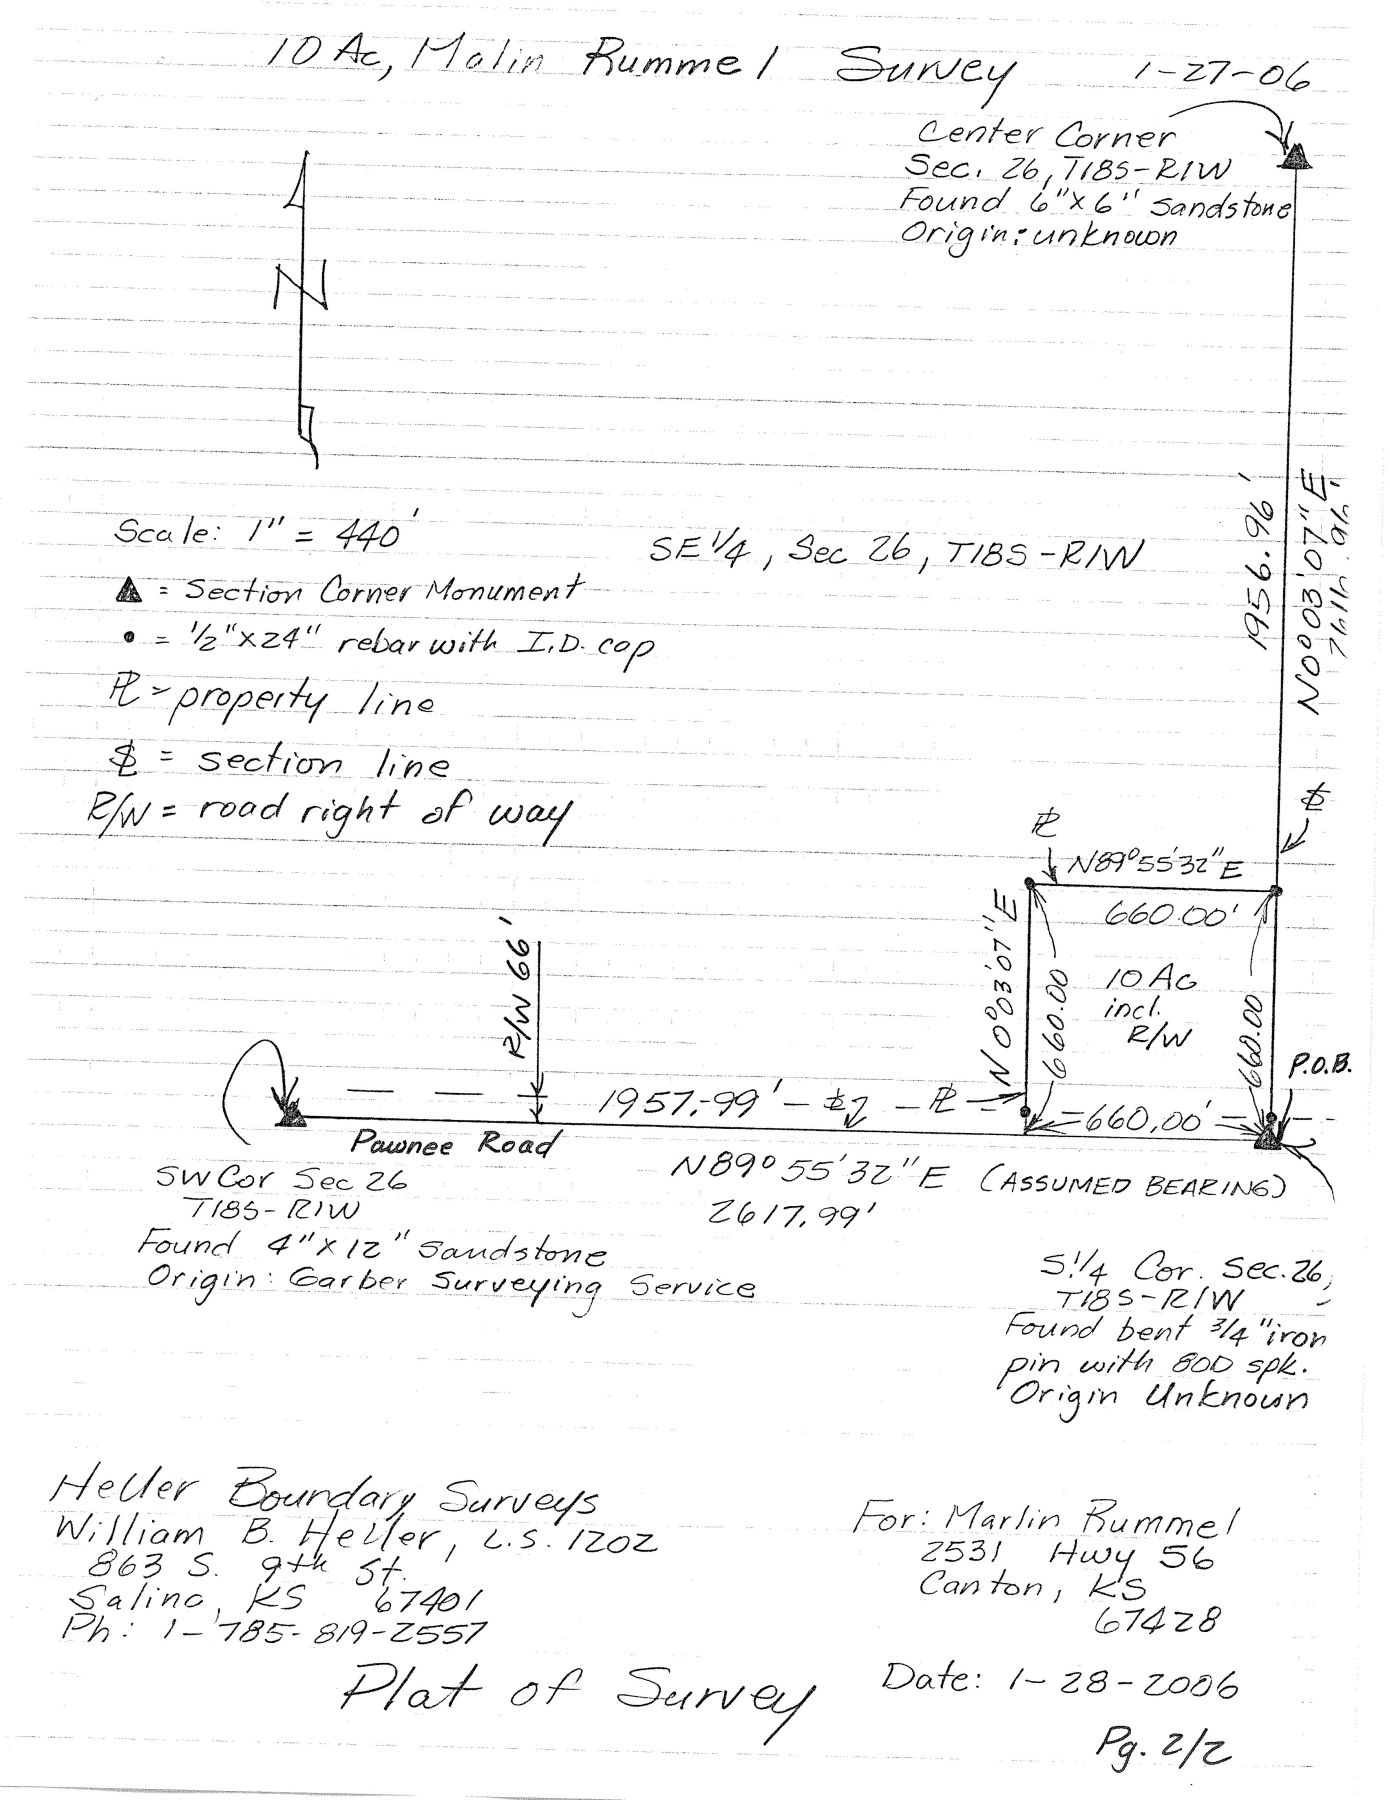 10 Ac, Malin Rummel Survey 1-27-06
Center Corner
Sec. 26, T18S-R1W
Found 6"x6" sandstone
Origin: unknown
N
Scale: 1" = 440'
SE 1/4, Sec 26, T18S-R1W
▲ = Section Corner Monument
• = 1/2"x24" rebar with I.D. cap
PL = property line
SL = section line
R/W = road right of way
1956.96'
N0°03'07"E
SL
PL
N89°55'32"E
660.00'
N0°03'07"E
660.00
10 Ac
incl.
R/W
660.00
P.O.B.
R/W 66'
1957.99' SL PL
660.00'
Pawnee Road
N89°55'32"E (ASSUMED BEARING)
2617.99'
SW Cor Sec 26
T18S-R1W
Found 4"x12" sandstone
Origin: Garber Surveying Service
S1/4 Cor. Sec. 26,
T18S-R1W
Found bent 3/4" iron
pin with 80D spk.
Origin Unknown
Heller Boundary Surveys
William B. Heller, L.S. 1202
863 S. 9th St.
Salina, KS 67401
Ph: 1-785-819-2557
For: Marlin Rummel
2531 Hwy 56
Canton, KS
67428
Plat of Survey
Date: 1-28-2006
Pg. 2/2